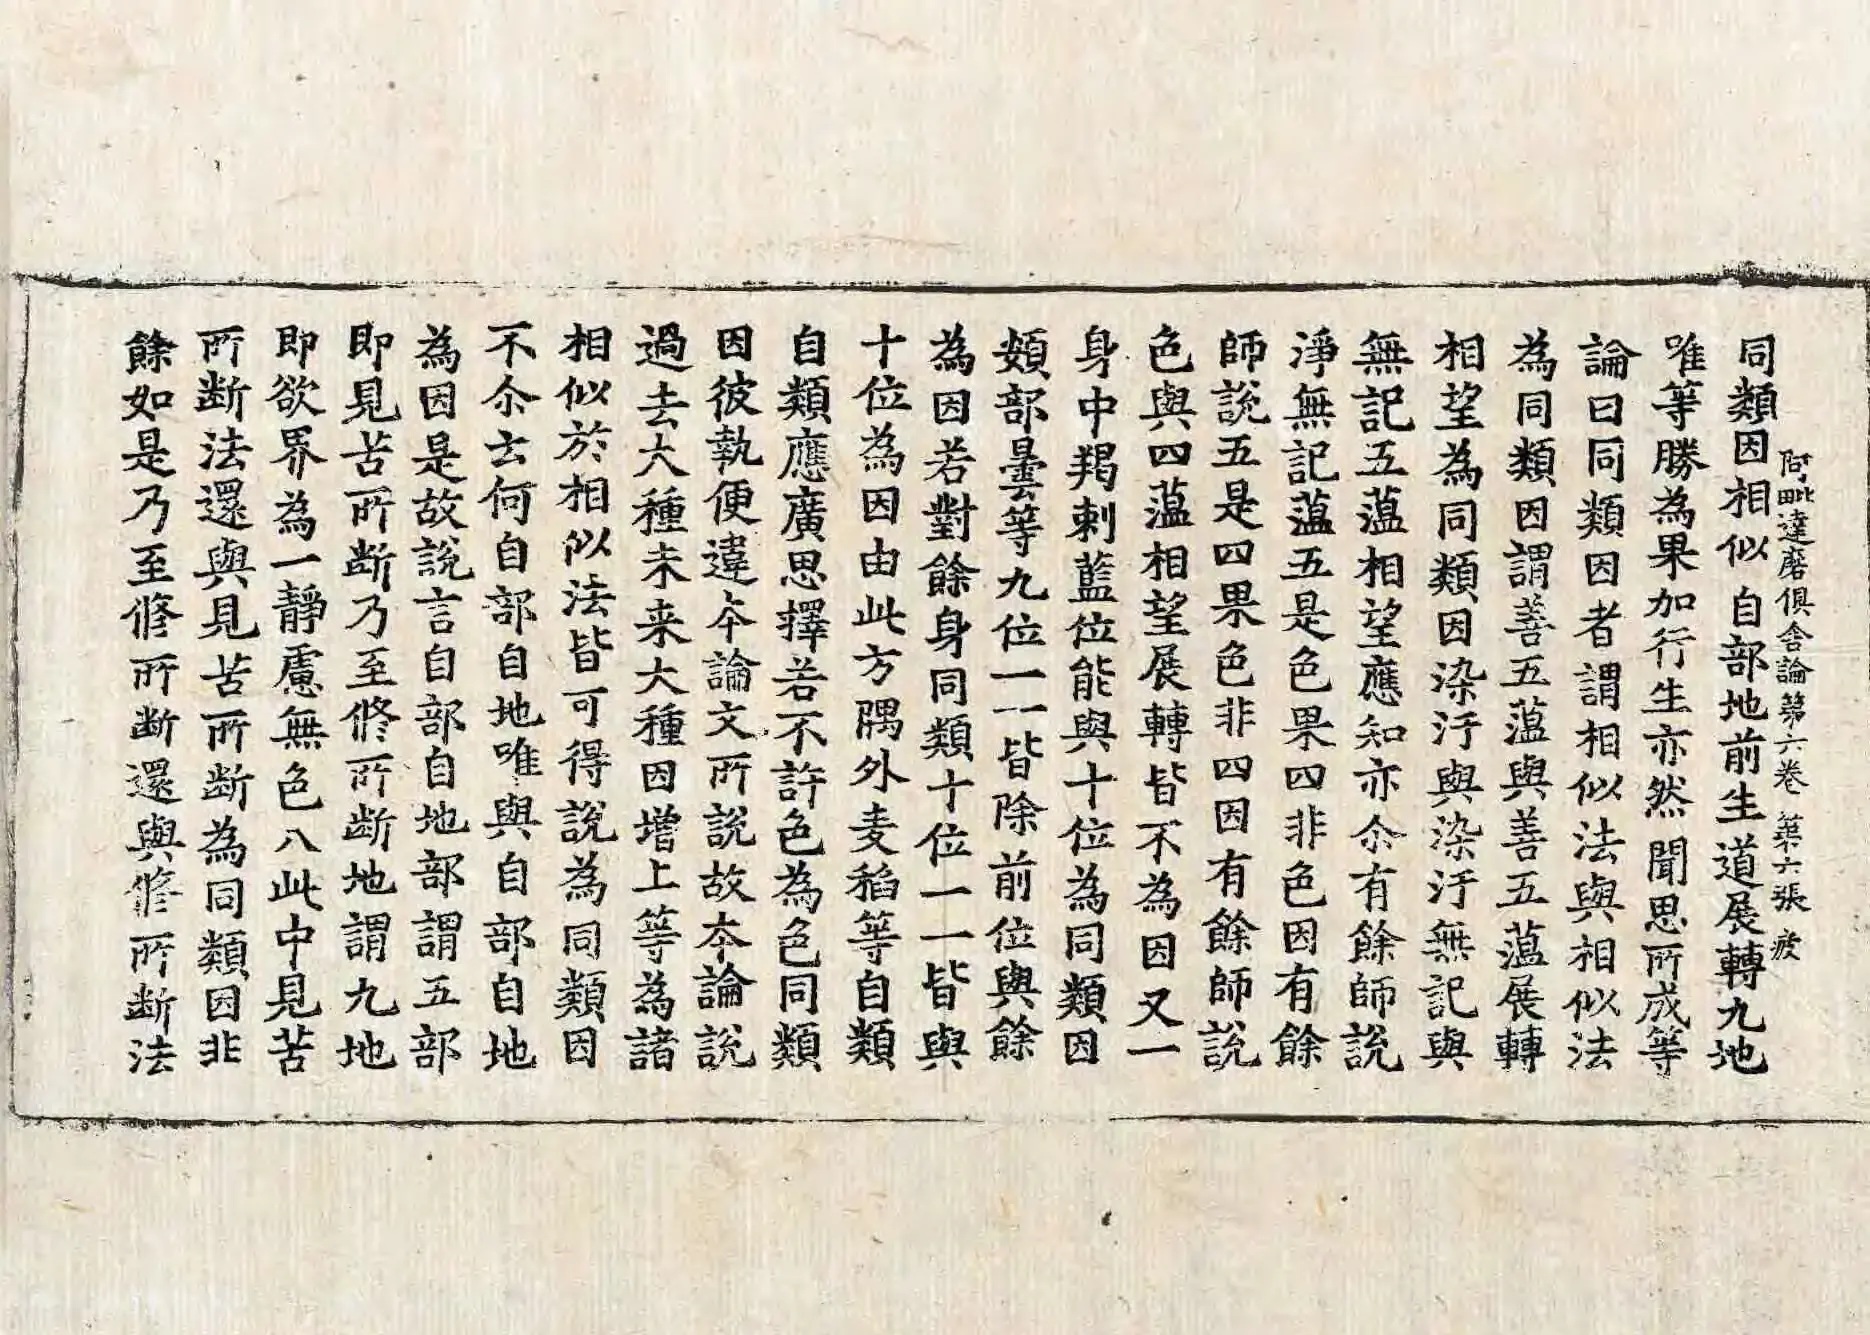 阿毗達磨俱舍論第六卷 第六張 疲
同類因相似 自部地前生道展轉九地
唯等勝為果加行生亦然 聞思所成等
論曰同類因者謂相似法與相似法
為同類因謂善五蕰與善五蕰展轉
相望為同類因染汙與染汙無記與
無記五蕰相望應知亦尒有餘師說
淨無記蕰五是色果四非色因有餘
師說五是四果色非四因有餘師說
色與四蕰相望展轉皆不為因又一
身中羯剌藍位能與十位為同類因
頞部曇等九位一一皆除前位與餘
為因若對餘身同類十位一一皆與
十位為因由此方隅外麦稻等自類
自類應廣思擇若不許色為色同類
因彼執便違夲論文所說故夲論說
過去大種未来大種因增上等為諸
相似於相似法皆可得說為同類因
不尒云何自部自地唯與自部自地
為因是故說言自部自地部謂五部
即見苦所斷乃至修所斷地謂九地
即欲界為一靜慮無色八此中見苦
所斷法還與見苦所斷為同類因非
餘如是乃至修所斷還與修所斷法